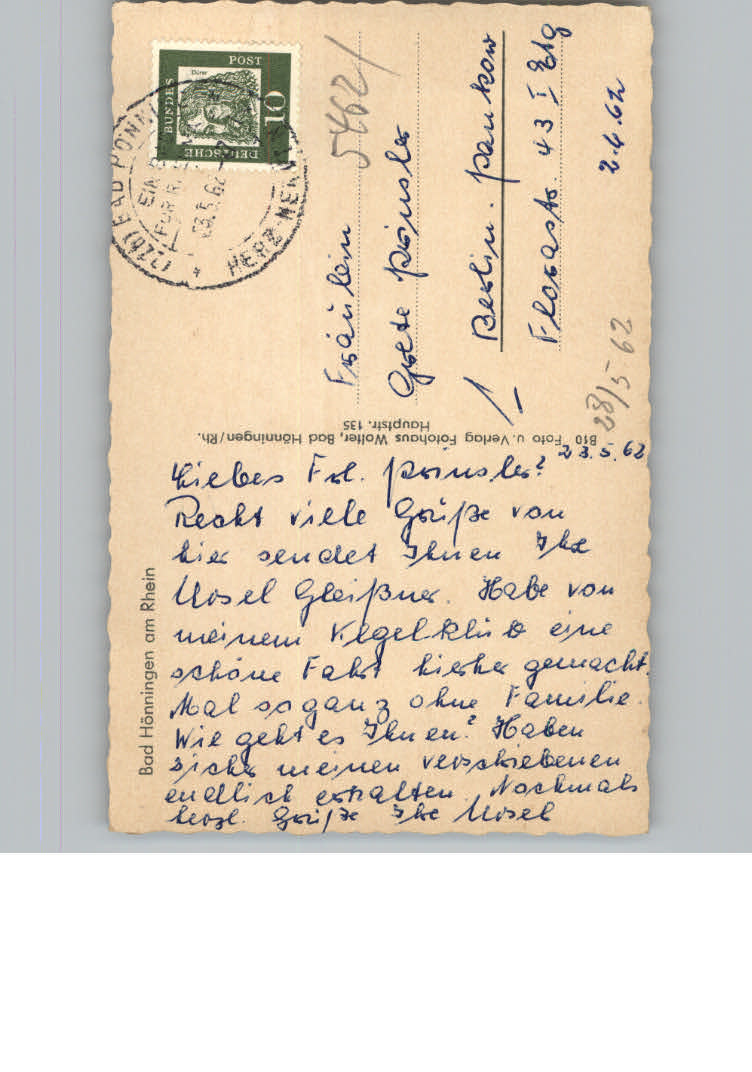 Bad Hönningen am Rhein
23.5.62
Liebes Frl. Prinsler?
Recht viele Grüße von
hier sendet Ihnen Ihr
Ursel Gleißner. Habe von
meinem Kegelklub eine
schöne Fahrt hierher gemacht.
Mal so ganz ohne Familie.
Wie geht es Ihnen? Haben
sicher meinen verschiebenen
endlich erhalten. Nochmals
herzl. Grüße Ihre Ursel
B10 Foto u. Verlag Fotohaus Wolter, Bad Hönningen/Rh.
Hauptstr. 135
DEUTSCHE
BUNDES
POST
10
Dürer
(22b) BAD HÖNNI
HERZ-NERV
23.5.62
5462/
Fräulein
Grete Prinsler
Berlin. Pankow
Florastr. 43 I Etg
2.6.62
28/5 62